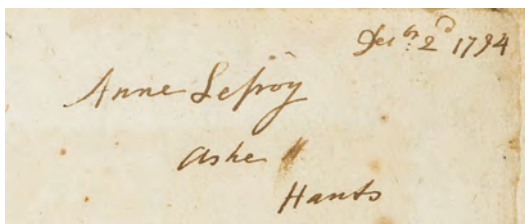 Decbr. 2d 1794
Anne Lefroy
Ashe
Hants